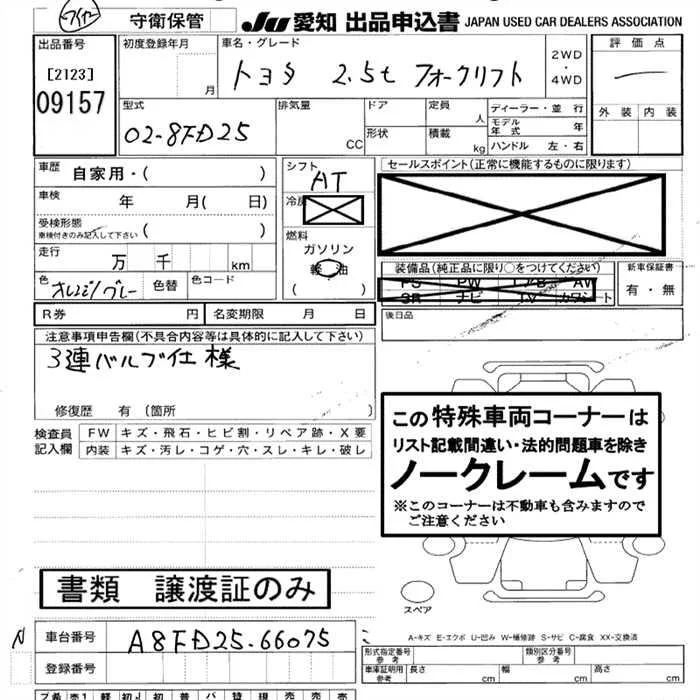 守衛保管 JU 愛知 出品申込書 JAPAN USED CAR DEALERS ASSOCIATION
出品番号
[2123]
09157
初度登録年月
月
車名・グレード
トヨタ 2.5t フォークリフト
2WD
・
4WD
評価点
外装 内装
型式
02-8FD25
排気量
CC
ドア
形状
定員
人
積載
kg
ディーラー・並 行
モデル年式 年
ハンドル 左・右
車歴
自家用・( )
車検 年 月( 日)
受検形態
車検付きのみ記入して下さい ( )
走行 万 千 km
色 オレンジ/グレー 色替 色コード
シフト
AT
冷房
燃料
ガソリン
軽・油
( )
セールスポイント(正常に機能するものに限ります)
装備品(純正品に限り○をつけてください)
PS PW エアB AW
SR ナビ TV カワシート
新車保証書
有・無
R券 円 名変期限 月 日
後日品
注意事項申告欄(不具合内容等は具体的に記入して下さい)
3連バルブ仕様
修復歴 有〔箇所 〕
検査員
記入欄
FW キズ・飛石・ヒビ割・リペア跡・X要
内装 キズ・汚レ・コゲ・穴・スレ・キレ・破レ
この特殊車両コーナーは
リスト記載間違い・法的問題車を除き
ノークレームです
※このコーナーは不動車も含みますので
ご注意ください
書類 譲渡証のみ
スペア
A-キズ E-エクボ U-凹み W-補修跡 S-サビ C-腐食 XX-交換済
N 車台番号 A8FD25-66075
登録番号
形式指定番号
参考
類別区分番号
参考
車庫証明用
参考
長さ cm 幅 cm 高さ cm